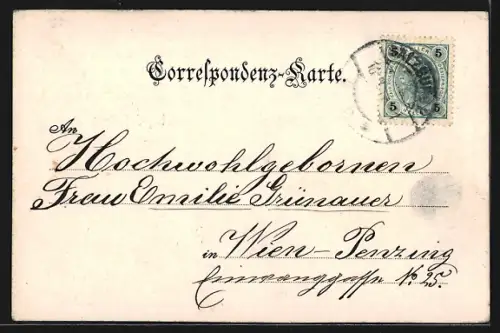 Correspondenz-Karte.
SALZBURG
5 5
5 5
An
Hochwohlgebornen
Frau Emilie Grünauer
in Wien-Penzing
Einwanggasse No. 25.